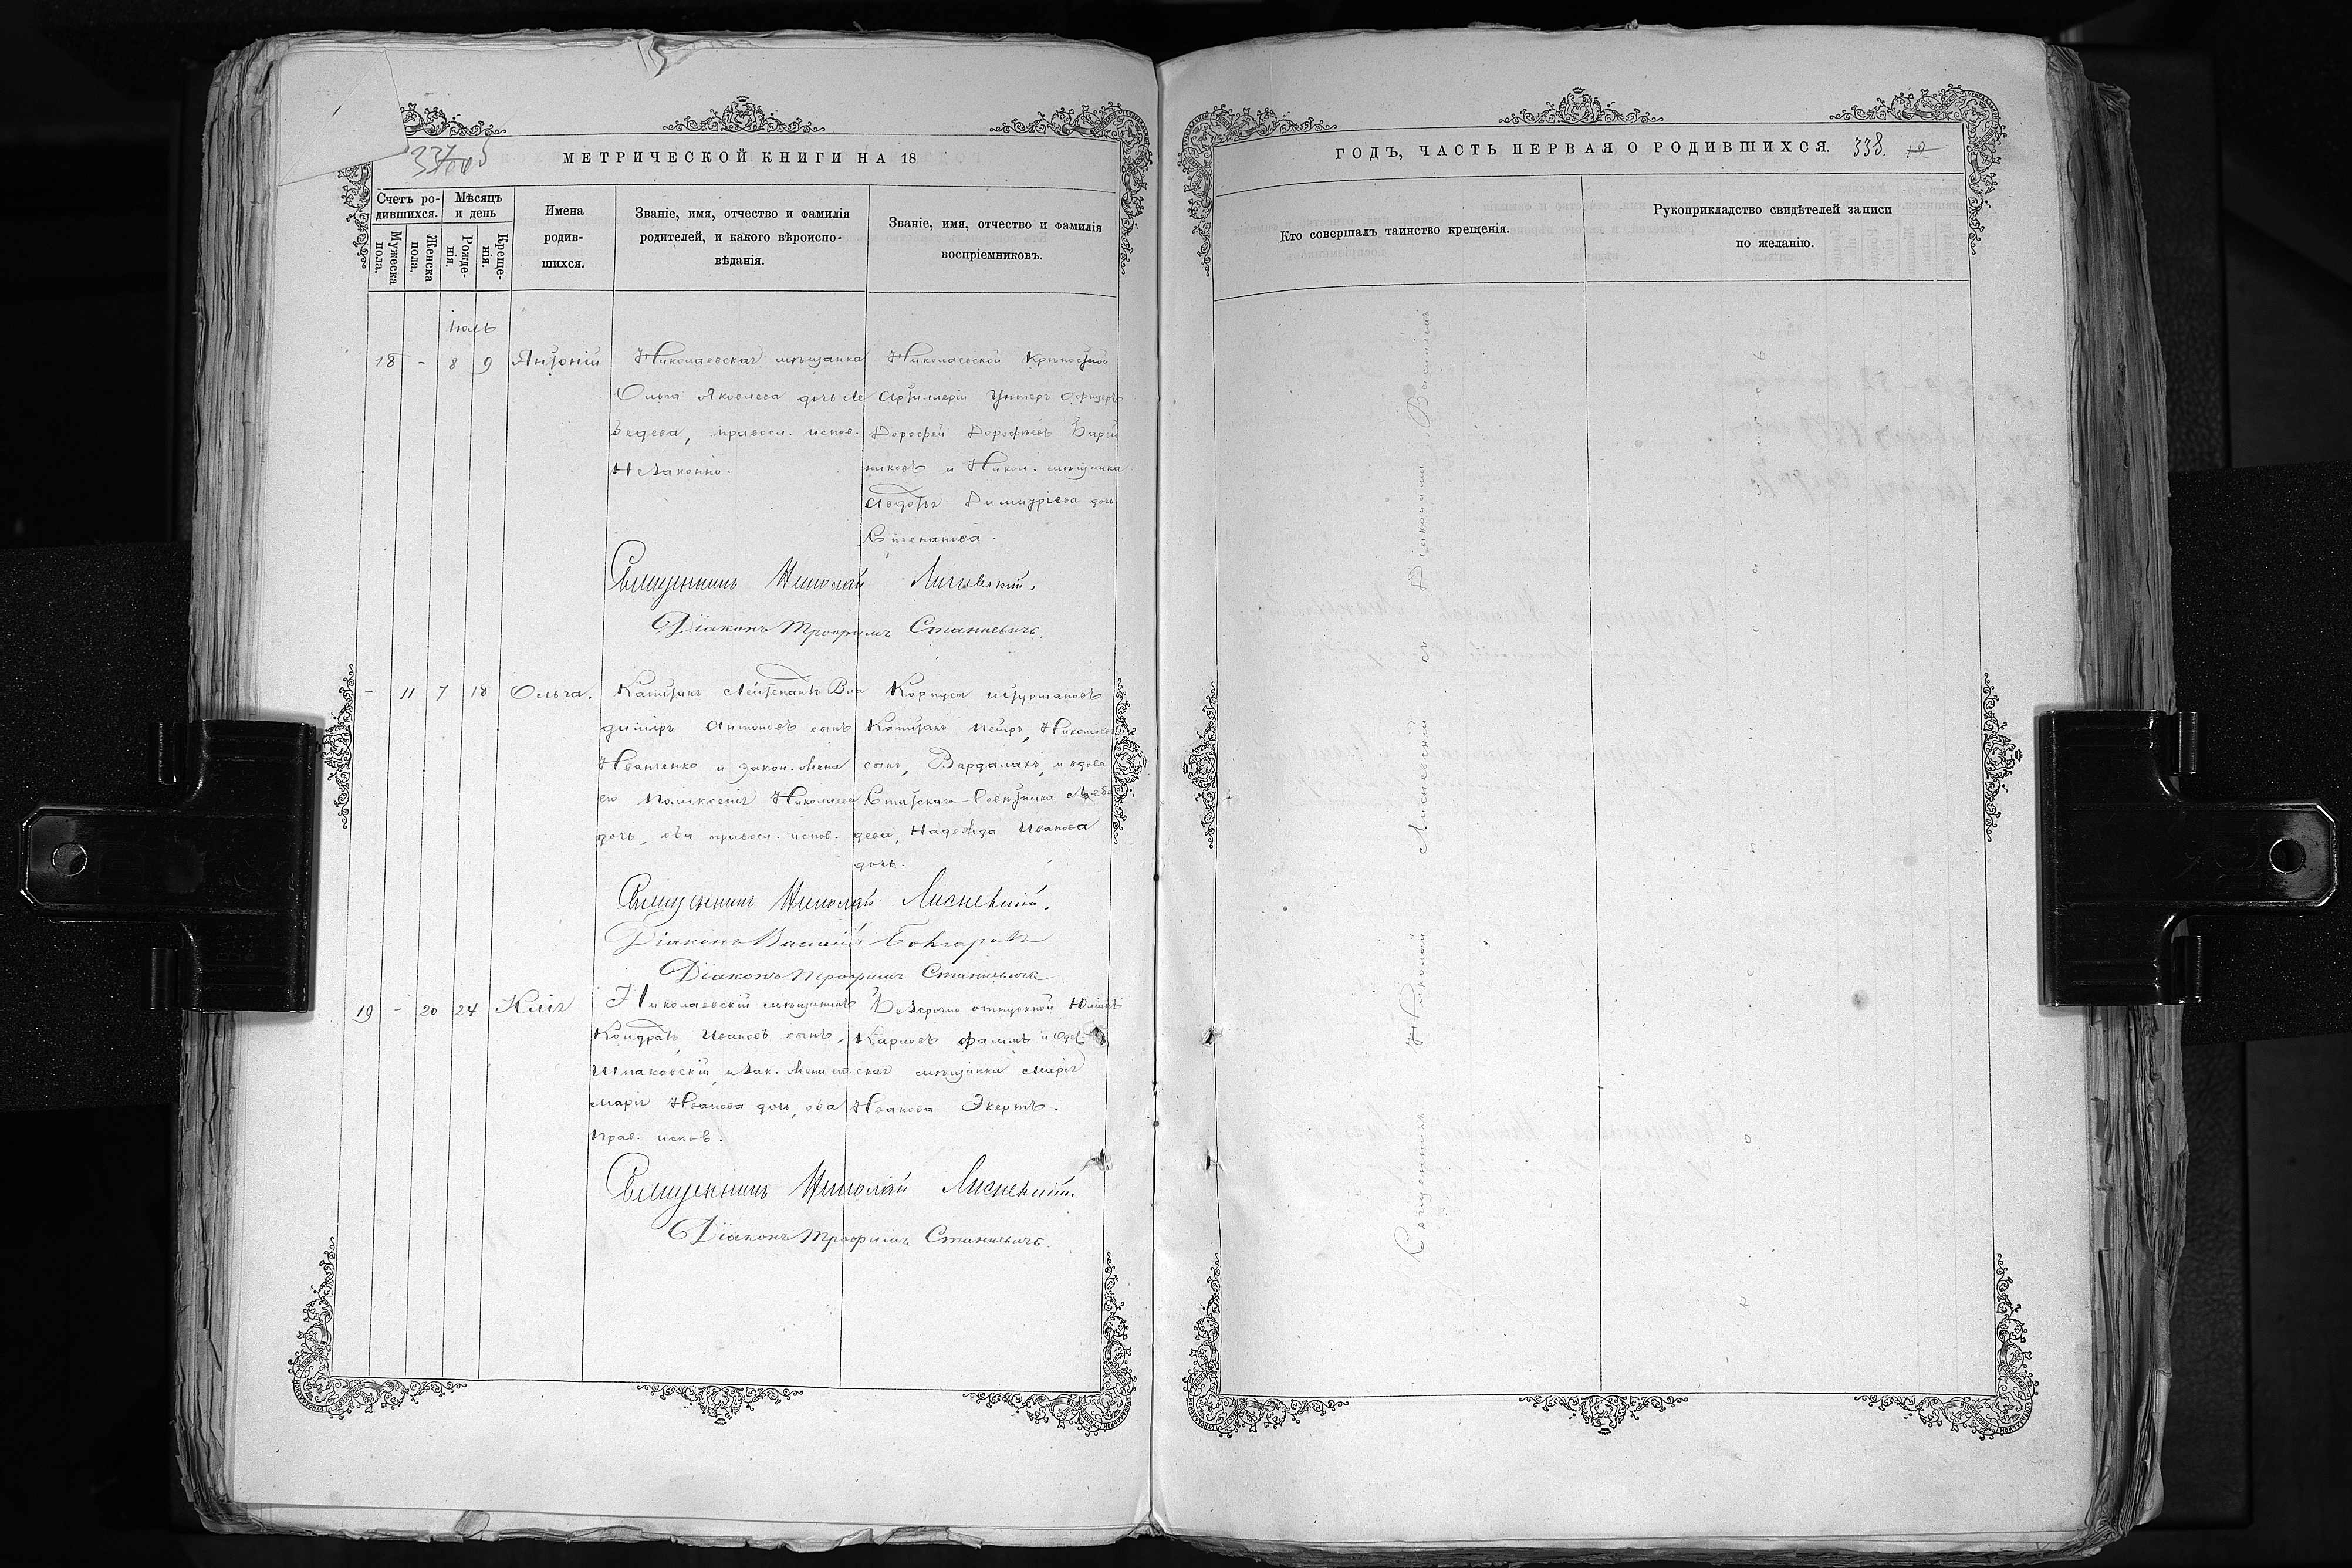 МЕТРИЧЕСКОЙ КНИГИ НА 18
Счетъ родившихся.
Мужеска пола.
Женска пола.
Мѣсяцъ и день
Рожденія.
Крещенія.
Имена
родив-
шихся.
Званіе, имя, отчество и фамилія
родителей, и какого вѣроиспо-
вѣданія.
Званіе, имя, отчество и фамилія
воспріемниковъ.
Іюль
18 - 8 9 Антоній
Николаевская мѣщанка
Ольга Яковлева дочь Ле
бедева, правосл. испов.
Незаконно.
Николаевской Крѣпостной
Артиллеріи Унтеръ Офицеръ
Дорофей Дорофѣевъ Варей
никовъ и Никол. мѣщанка
Авдотья Димитріева дочь
Степанова.
Священникъ Николай Лисневскій.
Діаконъ Трофимъ Станкевичъ.
- 11 7 18 Ольга.
Капитанъ Лейтенантъ Вла
диміръ Антоновъ сынъ
Иванченко и закон. жена
его Поликсенія Николаева
дочь, оба правосл. испов.
Корпуса штурмановъ
Капитанъ Петръ, Николаевъ
сынъ, Вардалахъ, и вдова
Статскаго Совѣтника Лебе
дева, Надежда Иванова
дочь.
Священникъ Николай Лисневскій.
Діаконъ Василій
Діаконъ Трофимъ Станкевичъ
19 - 20 24 Юлія
Николаевскій мѣщанинъ
Кондратъ Ивановъ сынъ,
Шпаковскій, и зак. жена его
Марія Иванова дочь, оба
прав. испов.
Безсрочно отпускной Юліанъ
Карловъ Фальмъ и Одес-
ская мѣщанка Марія
Иванова Экертъ.
Священникъ Николай Лисневскій.
Діаконъ Трофимъ Станкевичъ.
ГОДЪ, ЧАСТЬ ПЕРВАЯ О РОДИВШИХСЯ. 338.
Кто совершалъ таинство крещенія.
Рукоприкладство свидѣтелей записи
по желанію.
Священникъ Николай Лисневскій съ Діакономъ Василіемъ